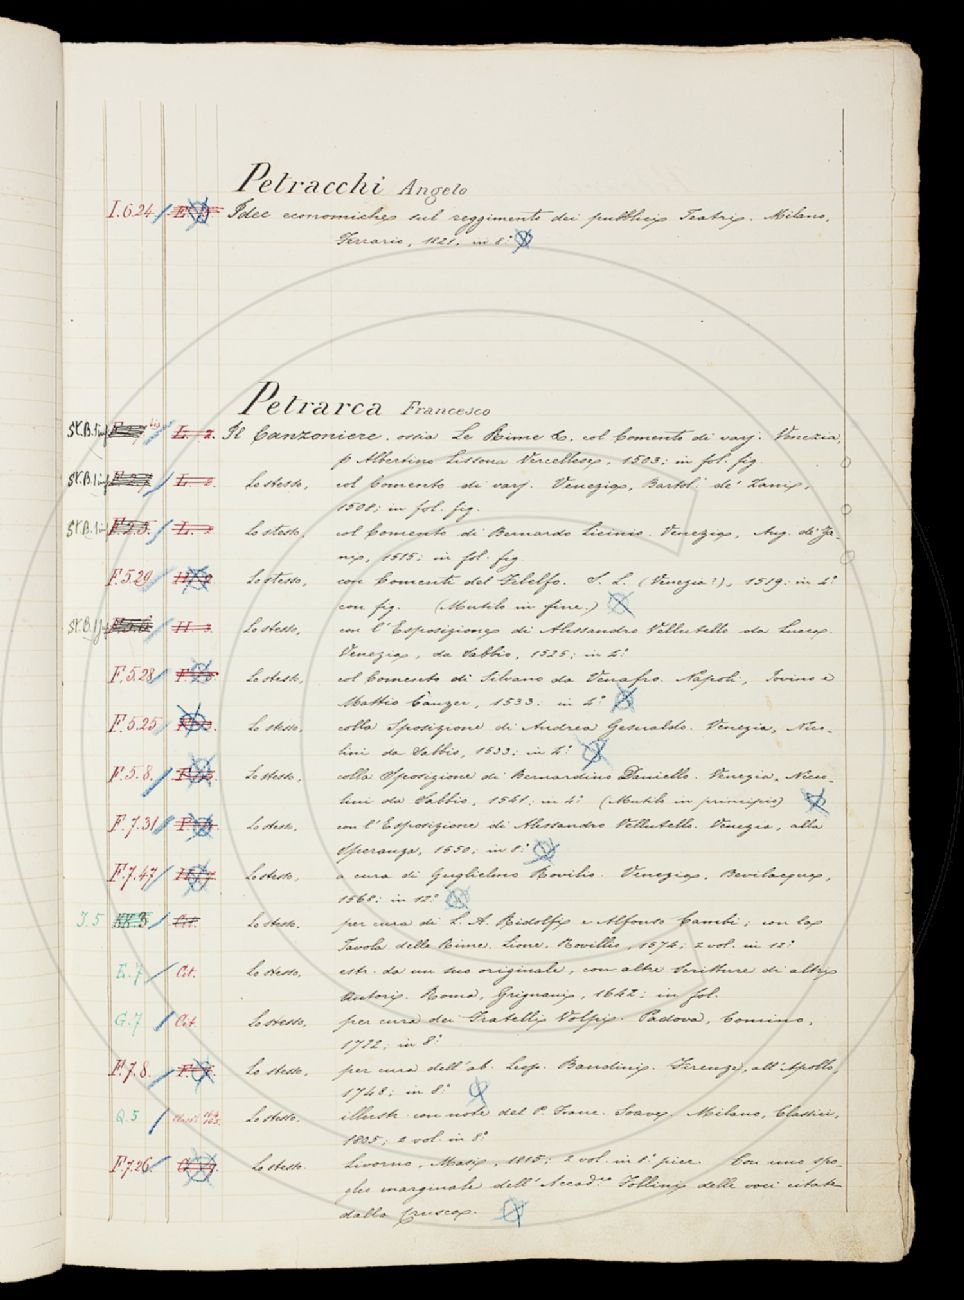 Petracchi Angelo
I.6.24 Idee economiche sul reggimento dei pubblici Teatri. Milano,
Ferrario, 1821. in 8.°
Petrarca Francesco
L. 2. Il Canzoniere, ossia Le Rime &. col Comento di varj. Venezia,
p Albertino Lissona Vercellese, 1503; in fol. fig.
L. 2. Lo stesso, col Comento di varj. Venezia, Bartol. de' Zani,
1508; in fol. fig.
F.2.5. L. 2 Lo stesso, col Comento di Bernardo Licinio. Venezia, Aug. de Za-
ni, 1515; in fol. fig
F.5.29 Lo stesso, con Comento del Filelfo. S. L. (Venezia?), 1519; in 4.°
con fig. (Mutilo in fine.)
H. 3. Lo stesso, con l'Esposizione di Alessandro Vellutello da Lucca.
Venezia, da Sabbio, 1525; in 4.°
F.5.28 Lo stesso, col Comento di Silvano da Venafro. Napoli, Jovino e
Mattio Canzer, 1533; in 4.°
F.5.25 Lo stesso, colla Sposizione di Andrea Gesualdo. Venezia, Nico-
lini da Sabbio, 1533; in 4.°
F.5.8. Lo stesso, colla Sposizione di Bernardino Daniello. Venezia, Nico-
lini da Sabbio, 1541; in 4.° (Mutilo in principio)
F.7.31 Lo stesso, con l'Esposizione di Alessandro Vellutello. Venezia, alla
Speranza, 1550; in 8.°
F.7.47 Lo stesso, a cura di Guglielmo Rovilio. Venezia, Bevilacqua,
1568; in 12.°
I.5 Cit. Lo stesso, per cura di L. A. Ridolfi e Alfonso Cambi; con la
Tavola delle Rime. Lione, Rovillio, 1574; 2 vol. in 12.°
E.7 Cit. Lo stesso, estr. da un suo originale, con altre Scritture di altri
Autori. Roma, Grignani, 1642; in fol.
G.7 Cit Lo stesso, per cura dei Fratelli Volpi. Padova, Comino,
1722; in 8.°
F.7.8. Lo stesso, per cura dell'ab. Lup. Bandini. Firenze, all'Apollo,
1748; in 8.°
Q.5 Lo stesso, illustr. con note del P. Franc. Soave. Milano, Classici,
1805; 2 vol. in 8.°
F.7.26. Lo stesso. Livorno, Masi, 1815; 2 vol. in 8.° picc. Con uno spo-
glio marginale dell'Accad.co Follini delle voci citate
dalla Crusca.